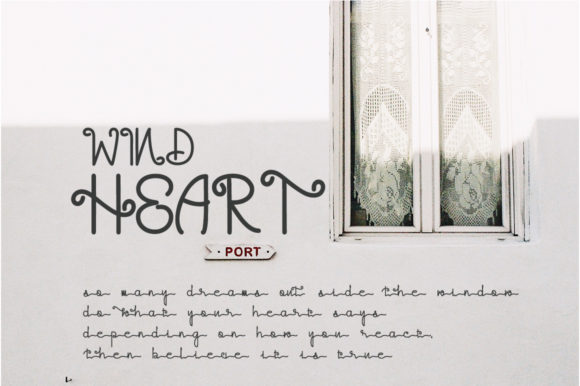 WIND
HEART
PORT
so many dreams out side the window
do what your heart says
depending on how you react,
then believe it is true